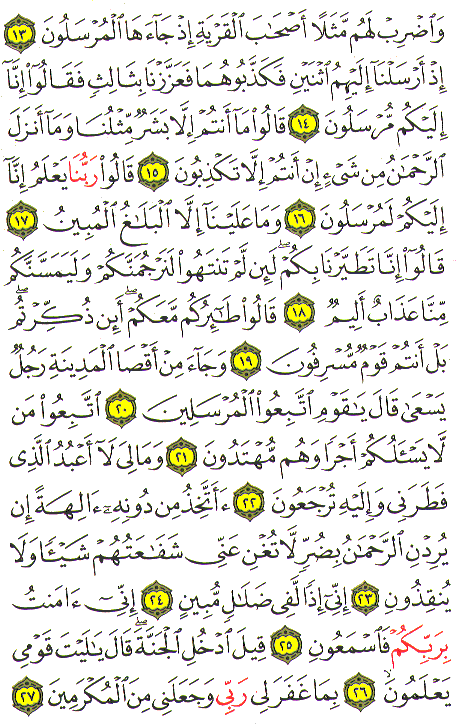 وَاضْرِبْ لَهُم مَّثَلًا أَصْحَابَ الْقَرْيَةِ إِذْ جَآءَهَا الْمُرْسَلُونَ ١٣
إِذْ أَرْسَلْنَآ إِلَيْهِمُ اثْنَيْنِ فَكَذَّبُوهُمَا فَعَزَّزْنَا بِثَالِثٍ فَقَالُوٓا۟ إِنَّآ
إِلَيْكُم مُّرْسَلُونَ ١٤ قَالُوا۟ مَآ أَنتُمْ إِلَّا بَشَرٌ مِّثْلُنَا وَمَآ أَنزَلَ
الرَّحْمَٰنُ مِن شَىْءٍ إِنْ أَنتُمْ إِلَّا تَكْذِبُونَ ١٥ قَالُوا۟ رَبُّنَا يَعْلَمُ إِنَّآ
إِلَيْكُمْ لَمُرْسَلُونَ ١٦ وَمَا عَلَيْنَآ إِلَّا الْبَلَٰغُ الْمُبِينُ ١٧
قَالُوٓا۟ إِنَّا تَطَيَّرْنَا بِكُمْ ۖ لَئِن لَّمْ تَنتَهُوا۟ لَنَرْجُمَنَّكُمْ وَلَيَمَسَّنَّكُم
مِّنَّا عَذَابٌ أَلِيمٌ ١٨ قَالُوا۟ طَٰٓئِرُكُم مَّعَكُمْ ۚ أَئِن ذُكِّرْتُم ۚ
بَلْ أَنتُمْ قَوْمٌ مُّسْرِفُونَ ١٩ وَجَآءَ مِنْ أَقْصَا الْمَدِينَةِ رَجُلٌ
يَسْعَىٰ قَالَ يَٰقَوْمِ اتَّبِعُوا۟ الْمُرْسَلِينَ ٢٠ اتَّبِعُوا۟ مَن
لَّا يَسْـَٔلُكُمْ أَجْرًا وَهُم مُّهْتَدُونَ ٢١ وَمَا لِىَ لَآ أَعْبُدُ الَّذِى
فَطَرَنِى وَإِلَيْهِ تُرْجَعُونَ ٢٢ ءَأَتَّخِذُ مِن دُونِهِۦٓ ءَالِهَةً إِن
يُرِدْنِ الرَّحْمَٰنُ بِضُرٍّ لَّا تُغْنِ عَنِّى شَفَٰعَتُهُمْ شَيْـًٔا وَلَا
يُنقِذُونِ ٢٣ إِنِّىٓ إِذًا لَّفِى ضَلَٰلٍ مُّبِينٍ ٢٤ إِنِّىٓ ءَامَنتُ
بِرَبِّكُمْ فَاسْمَعُونِ ٢٥ قِيلَ ادْخُلِ الْجَنَّةَ ۖ قَالَ يَٰلَيْتَ قَوْمِى
يَعْلَمُونَ ٢٦ بِمَا غَفَرَ لِى رَبِّى وَجَعَلَنِى مِنَ الْمُكْرَمِينَ ٢٧